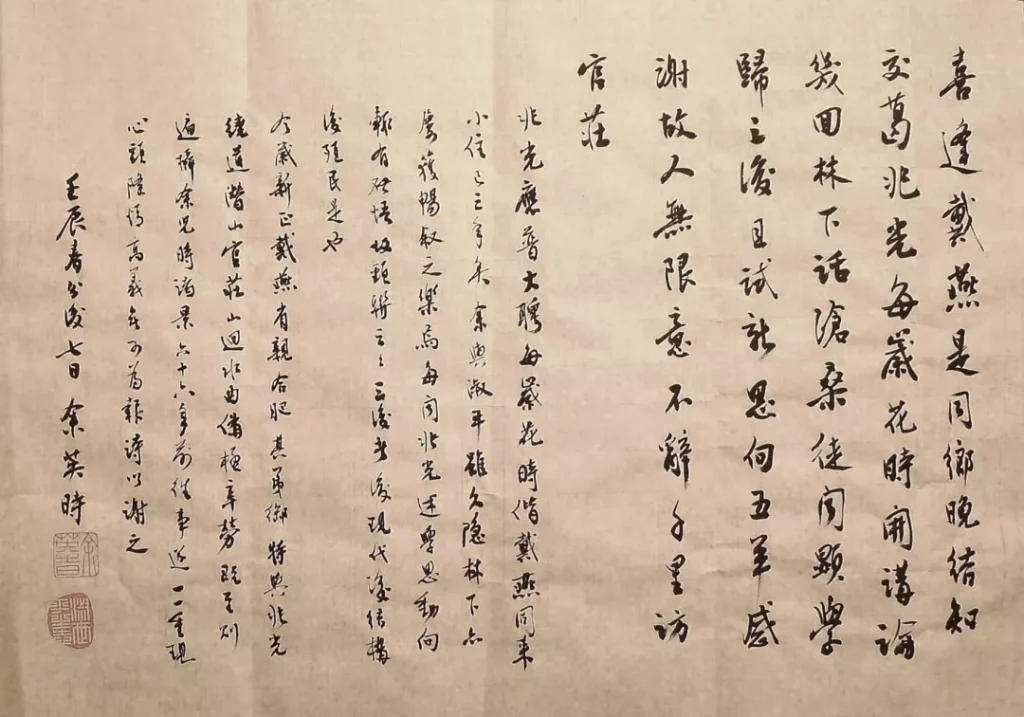 喜逢戴燕是同鄉晚結知
交葛兆光每歲花時開講論
幾回林下話滄桑徒聞顯學
歸三後且試新思向五羊感
謝故人無限意不辭千里訪
官莊
兆光應普大聘每歲花時偕戴燕同來
小住已三年矣余與淑平雖久隱林下亦
屢獲暢敘之樂焉每聞兆光述學思動向
輒有啟悟故頸聯云云三後者後現代後結構
後殖民是也
今歲新正戴燕省親合肥其事 特與兆光
繞道潛山官莊山迴水曲備極辛勞既至則
遍攝余兒時諸景六十六年前往事遂一一重現
心頭隆情高義無可為報詩以謝之
壬辰春分後七日余英時